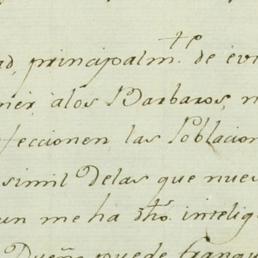 ad, principalm.te de evi
ner, alos Barbaros, n
feccionen las Poblacion
simil Delas que nues
un me ha dho. intelig
Dueño puede franqu